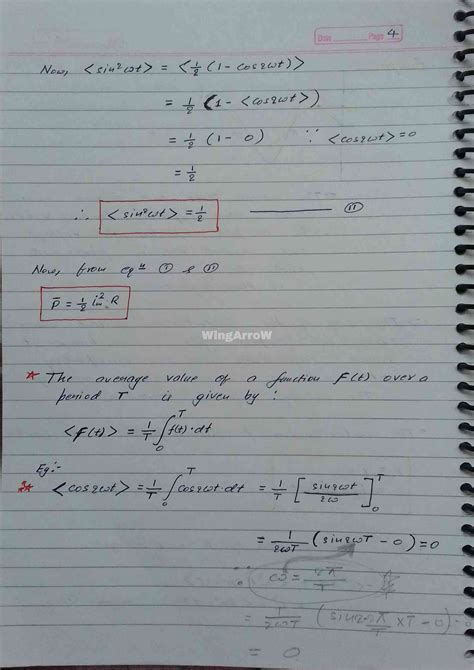 Date Page 4
Now, <sin²ωt> = <½ (1 - cos2ωt)>
= ½ (1 - <cos2ωt>)
= ½ (1 - 0) ∵ <cos2ωt> = 0
= ½
∴ <sin²ωt> = ½ ——— (II)
Now, from eqⁿ (I) & (II)
P̄ = ½ iₘ² R
WingArroW
* The average value of a function F(t) over a
period T is given by :
<F(t)> = 1/T ∫₀ᵀ f(t)·dt
Eg:-
<cos2ωt> = 1/T ∫₀ᵀ cos2ωt·dt = 1/T [sin2ωt / 2ω]₀ᵀ
= 1/2ωT (sin2ωT - 0) = 0
∵ ω = 2π/T
= 1/2ωT (sin2·2π/T × T - 0)
= 0